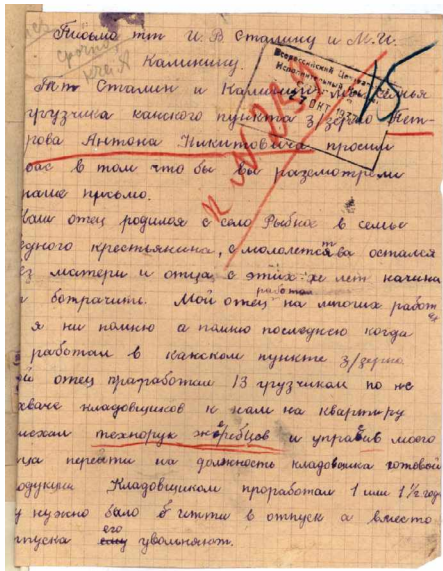 срочно
Письмо тт И. В Сталину и М. И.
Калинину.
Всероссийский Центр.
Исполнительный
ОКТ 193
15
Тт Сталин и Калинин мы семья
грузчика канского пункта з/зерно Пет-
рова Антона Никитовича просим
вас в том что бы вы разсмотрели
наше письмо.
Наш отец родился с село Рыбное в семье
едного крестьянина, с малолетства остался
ез матери и отца с этих же лет начина
ботрачить. Мой отец работал на многих работ
я ни помню а помню последнюю когда
работал в канском пункте з/зерно
ой отец праработал 13 грузчиком по не
хваче кладовщиков к нам на квартиру
риехал технорук жеребцов и управив моего
ца перейти на должность кладовщика готовой
одукции Кладовщиком проработал 1 или 1½ год
у нужно было итти в отпуск а вместо
тпуска его увольняют.